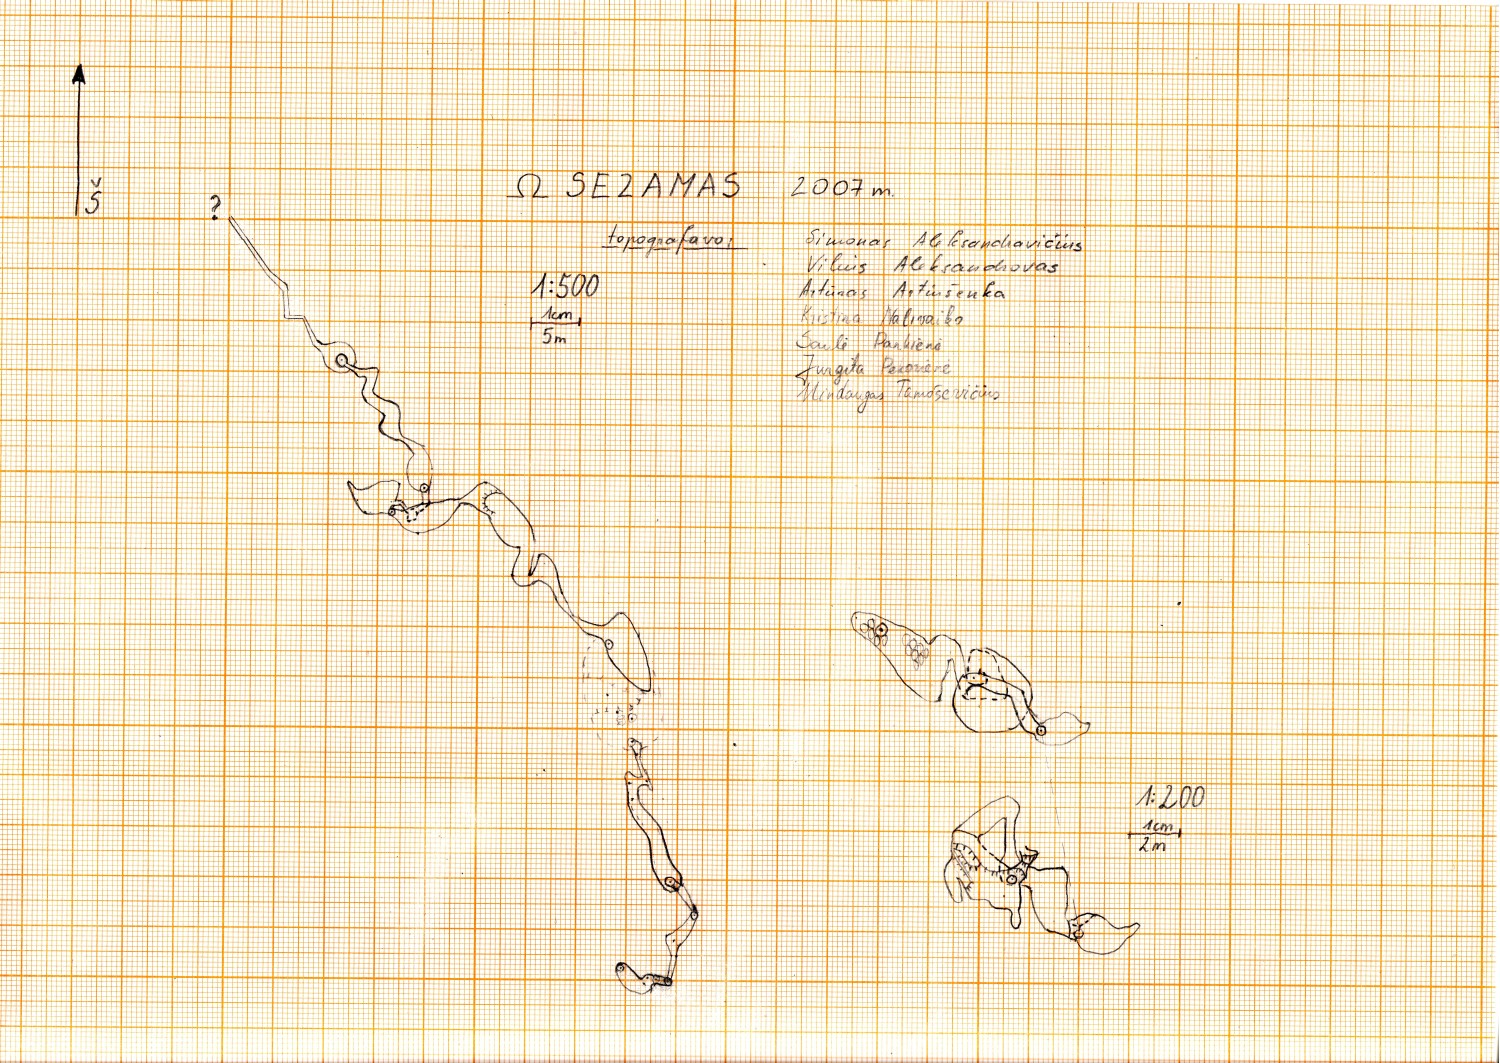 Š
?
Ω SEZAMAS 2007 m.
topografavo:
1:500
1cm
5m
Simonas Aleksandravičius
Vilius Aleksandrovas
Artūras Artiušenka
Kristina Nalivaiko
Saulė Pankienė
Jurgita
Mindaugas Tamoševičius
1:200
1cm
2m